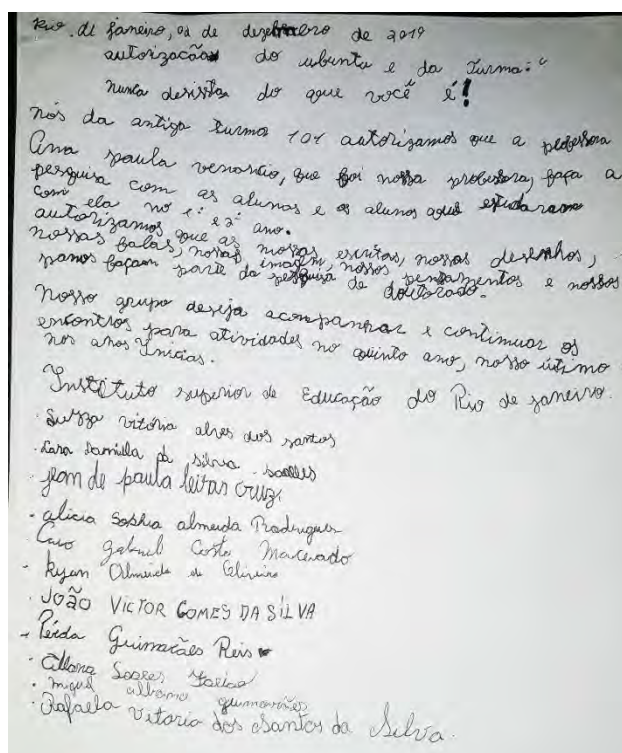 Rio de janeiro, 02 de dezembro de 2019
autorização do ubuntu e da Turma: "
nunca desista do que você é"!
nós da antiga turma 101 autorizamos que a professora
Ana paula venancio, que foi nossa professora, faça a
pesquisa com as alunas e os alunos que estudaram
com ela no 1º e 2º ano.
autorizamos que as nossas escritas, nossos desenhos,
nossas falas, nossas imagem, nossos pensamentos e nossos
panos façam parte da pesquisa de doutorado.
Nosso grupo deseja acompanhar e continuar os
encontros para atividades no quinto ano, nosso útimo
nos anos Inicias.
Instituto superior de Educação do Rio de janeiro.
vitória alves dos santos
· Lara Damilla da silva soares
· jean de paula leitas cruz
· alicia Sophia almeida Rodrigues
Caio gabriel Costa Macedo
· Kyan Almeida de Oliveira
· JOÃO VICTOR GOMES DA SILVA
· Guimarães Reis
· Allana Soares
· miguel albano guimarães
· Rafaela vitoria dos Santos da Silva.